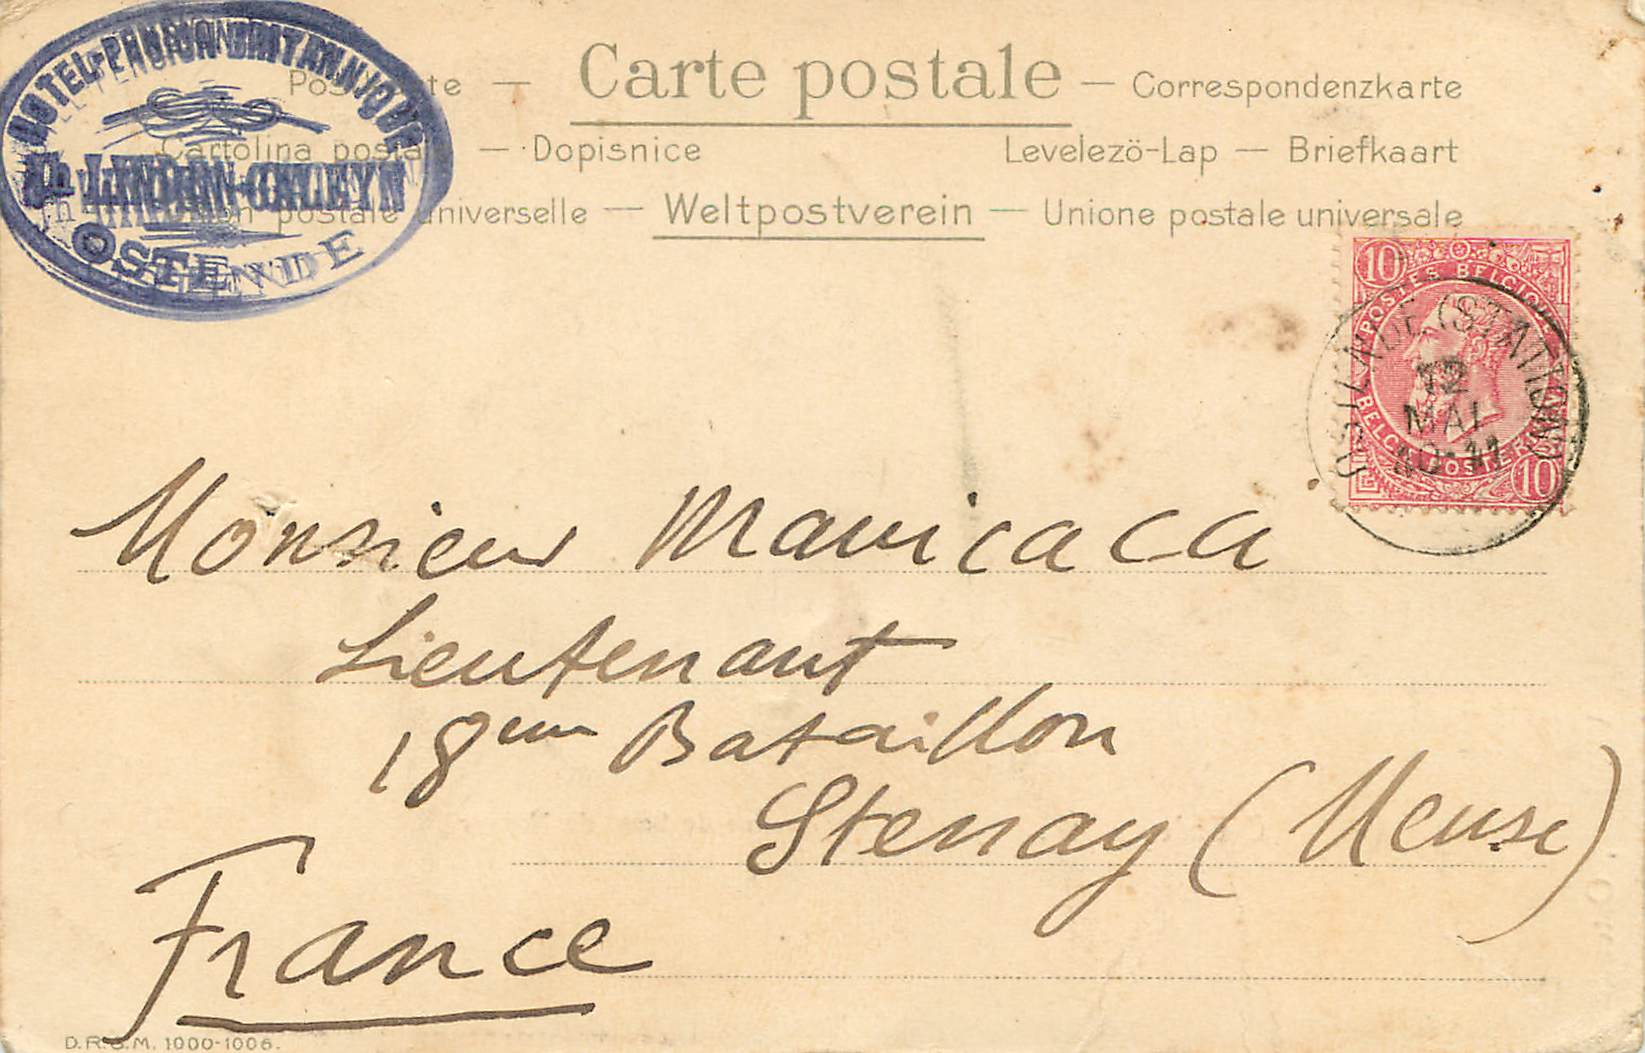 HOTEL-PENSION BRITANNIQUE
OSTENDE
Carte postale — Correspondenzkarte
Cartolina posta — Dopisnice Levelezö-Lap — Briefkaart
postale universelle — Weltpostverein — Unione postale universale
10
POSTES BELGIQUE
BELGIË POSTERIJEN
10
OSTENDE (STATION)
12
MAI
10-11
Monsieur
Lieutenant
18eme Bataillon
Stenay (Meuse)
France
D.R.G.M. 1000-1006.